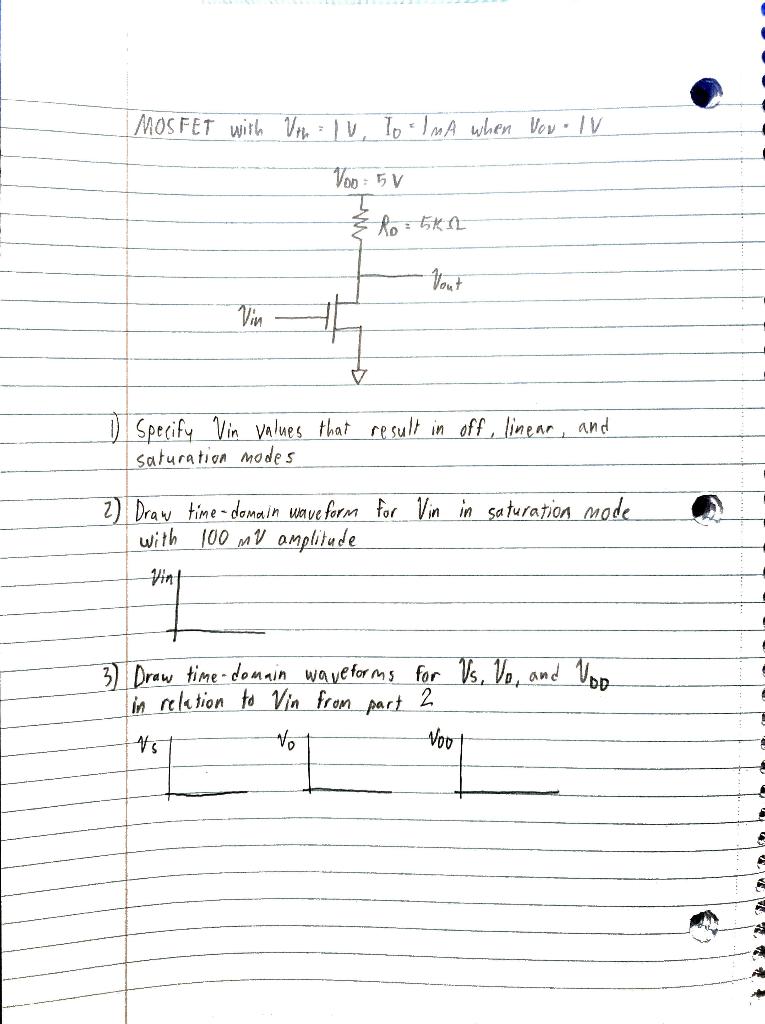 MOSFET with Vth = 1 V, ID = 1 mA when Vov = 1V
VDD = 5 V
RD = 5K Ω
Vout
Vin
1) Specify Vin values that result in off, linear, and
saturation modes
2) Draw time-domain waveform for Vin in saturation mode
with 100 mV amplitude
Vin
3) Draw time-domain waveforms for Vs, VD, and VDD
in relation to Vin from part 2
Vs VD VDD